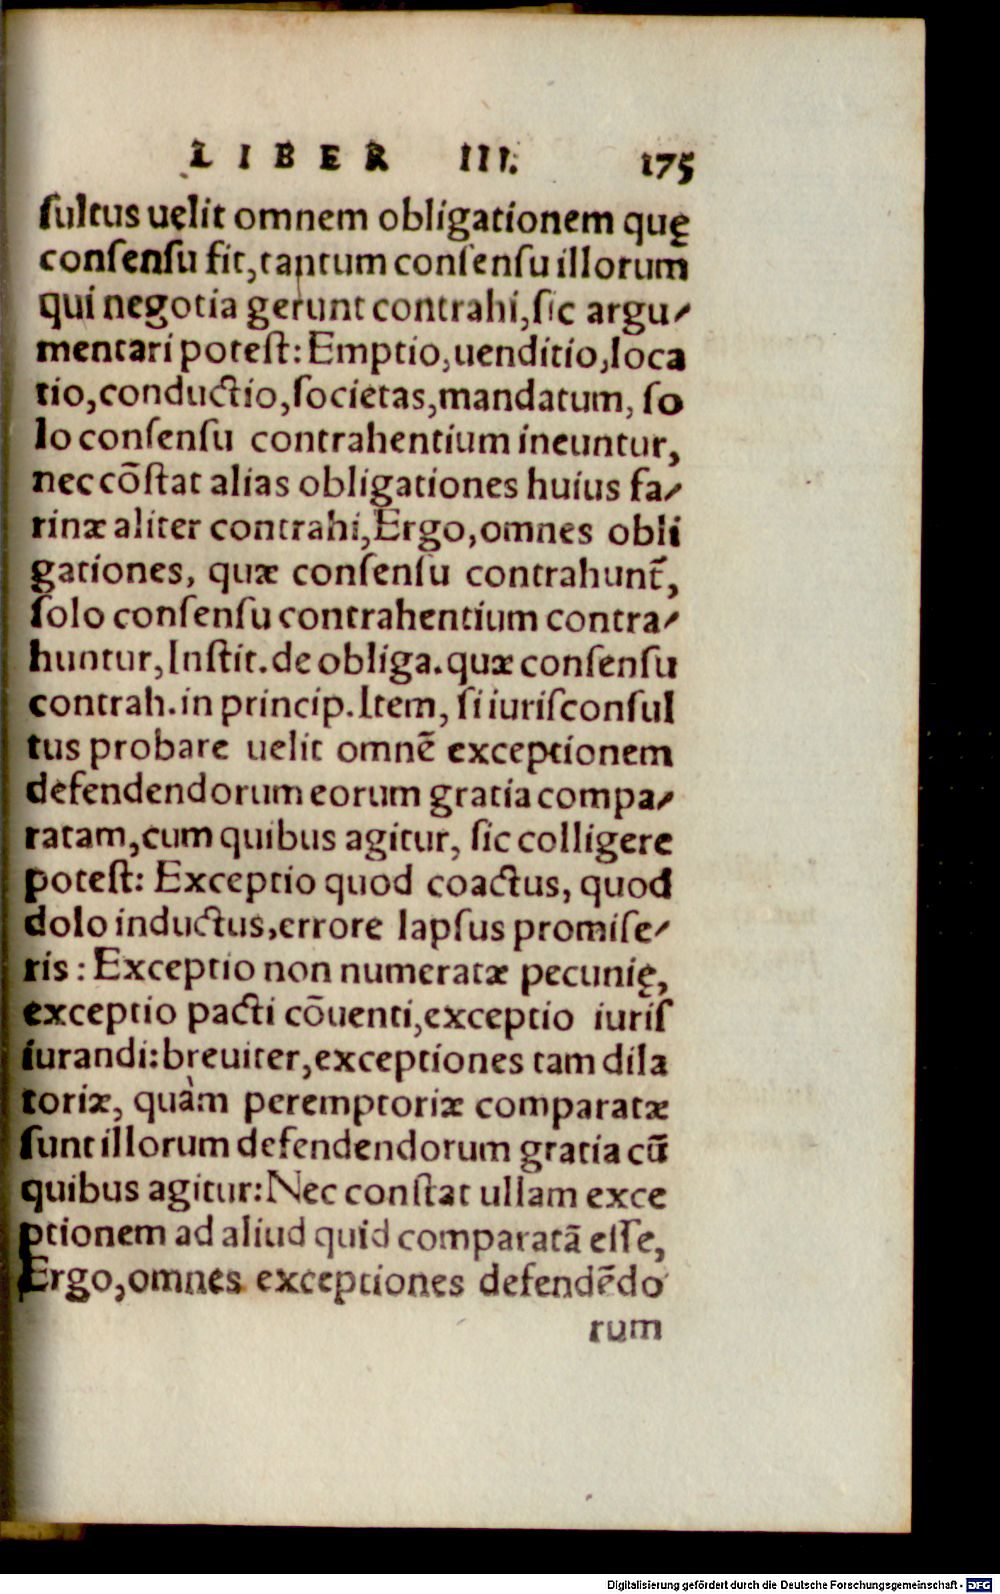 LIBER III. 175
ſultus uelit omnem obligationem quę
conſenſu fit, tantum conſenſu illorum
qui negotia gerunt contrahi, ſic argu-
mentari poteſt: Emptio, uenditio, loca
tio, conductio, ſocietas, mandatum, ſo
lo conſenſu contrahentium ineuntur,
nec cōſtat alias obligationes huius fa-
rinæ aliter contrahi, Ergo, omnes obli
gationes, quæ conſenſu contrahunt̃,
ſolo conſenſu contrahentium contra-
huntur, Inſtit. de obliga. quæ conſenſu
contrah. in princip. Item, ſi iuriſconſul
tus probare uelit omnẽ exceptionem
defendendorum eorum gratia compa-
ratam, cum quibus agitur, ſic colligere
poteſt: Exceptio quod coactus, quod
dolo inductus, errore lapſus promiſe-
ris: Exceptio non numeratæ pecunię,
exceptio pacti cōuenti, exceptio iuriſ
iurandi: breuiter, exceptiones tam dila
toriæ, quàm peremptoriæ comparatæ
ſunt illorum defendendorum gratia cū
quibus agitur: Nec conſtat ullam exce
ptionem ad aliud quid comparatã eſſe,
Ergo, omnes exceptiones defendẽdo
rum
Digitalisierung gefördert durch die Deutsche Forschungsgemeinschaft - DFG